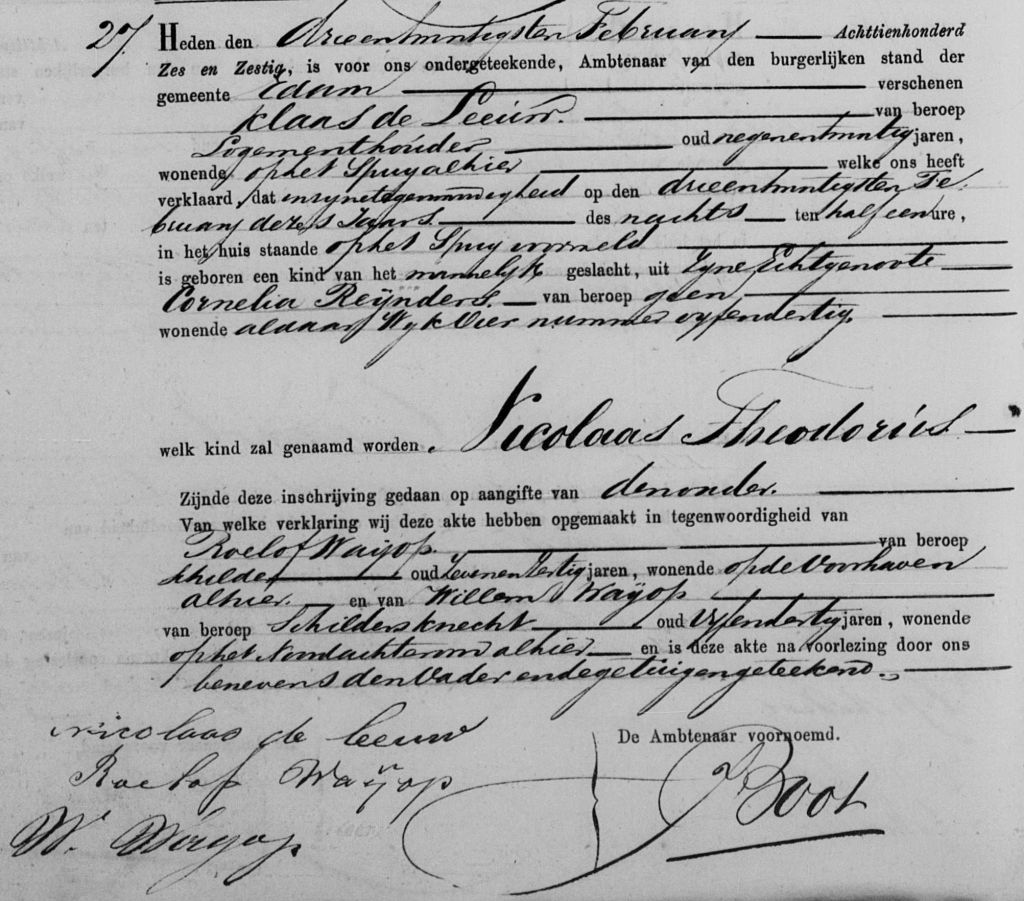 27. Heden den drieentwintigsten Februarij Achttienhonderd
Zes en Zestig, is voor ons ondergeteekende, Ambtenaar van den burgerlijken stand der
gemeente Edam verschenen
Klaas de Leeuw. van beroep
Logementhouder oud negenentwintig jaren,
wonende op het Spuy alhier welke ons heeft
verklaard, dat in zijne tegenwoordigheid op den drieentwintigsten Fe-
bruarij dezes Jaars des nachts ten half een ure,
in het huis staande op het Spuy voormeld
is geboren een kind van het mannelijk geslacht, uit Zyne Echtgenoote
Cornelia Reÿnders. van beroep geen,
wonende aldaar Wyk Vier nummer vyfendertig.
welk kind zal genaamd worden. Nicolaas Theodorus
Zijnde deze inschrijving gedaan op aangifte van den vader.
Van welke verklaring wij deze akte hebben opgemaakt in tegenwoordigheid van
Roelof Waÿop. van beroep
Schilder oud Zevenenzestig jaren, wonende op de Voorhaven
alhier. en van Willem Waÿop
van beroep Schildersknecht oud Vyfendertig jaren, wonende
op het Noordachterom alhier en is deze akte na voorlezing door ons
benevens den Vader en de getuigen geteekend.
Nicolaas de Leeuw De Ambtenaar voornoemd.
Roelof Waÿop Boot
W. Wayop